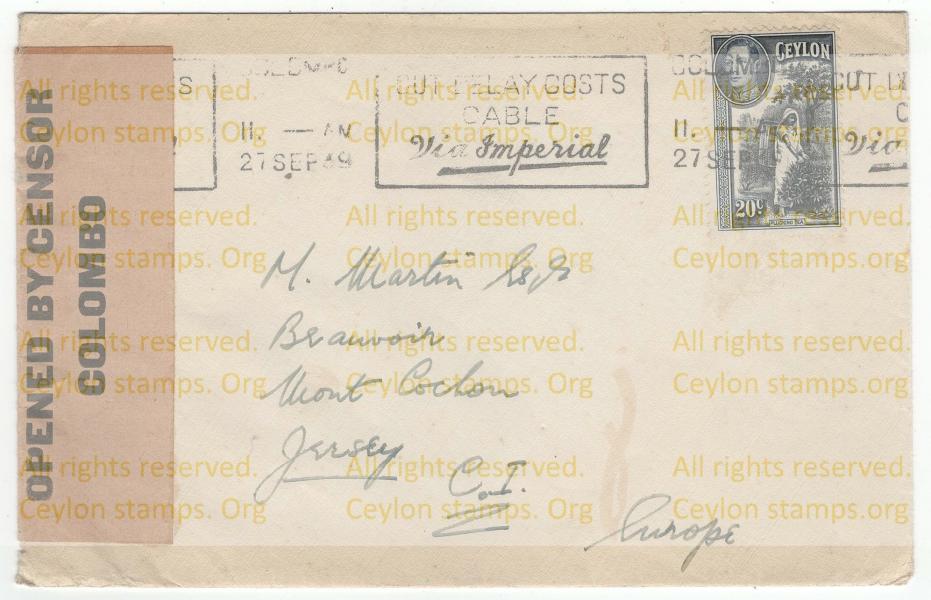 OPENED BY CENSOR
COLOMBO
S
COLOMBO
11. — AM
27 SEP 39
CUT DELAY COSTS
CABLE
Via Imperial
COLOM
11. —
27 SEP
CUT
C
Via
CEYLON
20c
PLUCKING TEA
M. Martin Esqr
Beauvoir
Mont Cochon
Jersey
C.I.
Europe
All rights reserved. All rights reserved. All rights reserved.
Ceylon stamps. Org Ceylon stamps. Org Ceylon stamps.org
All rights reserved. All rights reserved. All rights reserved.
Ceylon stamps. Org Ceylon stamps. Org Ceylon stamps.org
All rights reserved. All rights reserved. All rights reserved.
Ceylon stamps. Org Ceylon stamps. Org Ceylon stamps.org
All rights reserved. All rights reserved. All rights reserved.
Ceylon stamps. Org Ceylon stamps. Org Ceylon stamps.org